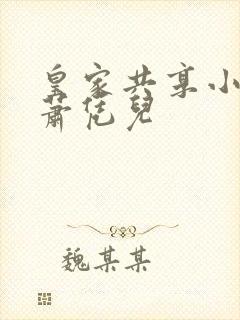 皇家共享小
蕭恁兒
魏某某